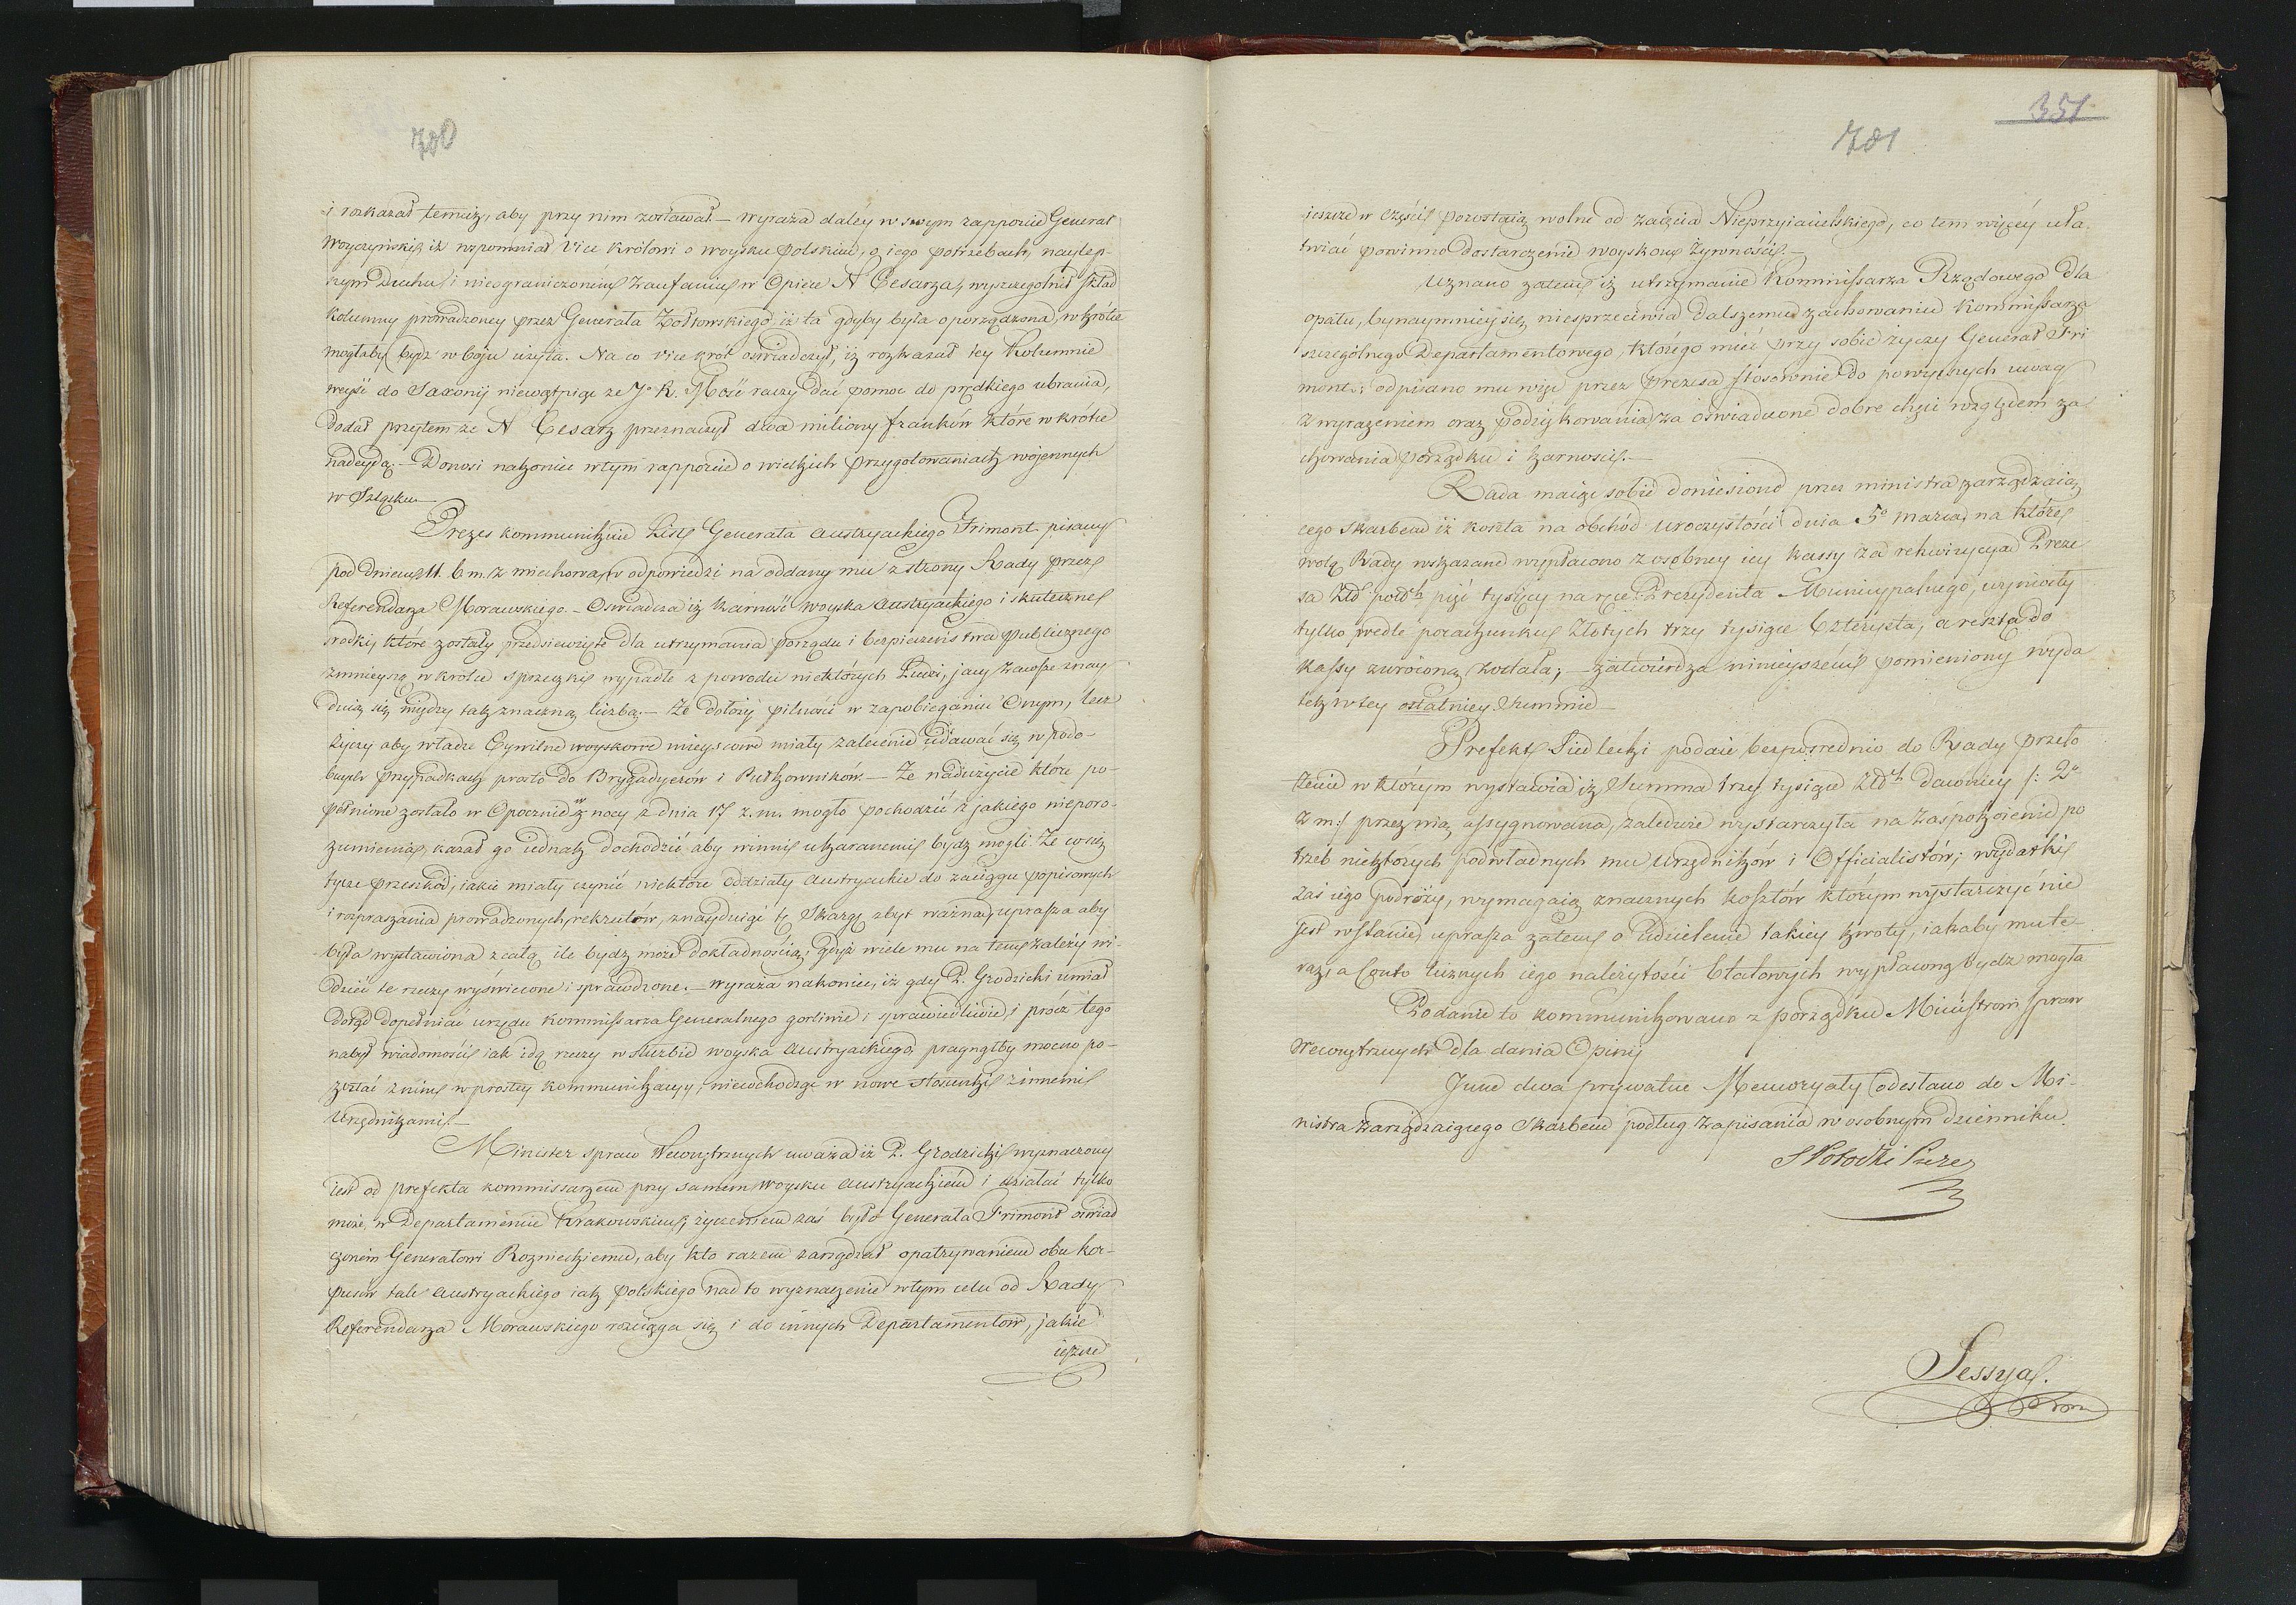 700
i rozkazał temuż, aby przy nim zostawał. — Wyraża daley w swym rapporcie Generał
Woyczyński, iż wspomniał Vice Królowi o woysku polskiem, o iego potrzebach, naylep-
szym Duchu i nieograniczonem zaufaniu w Opiece N Cesarza, wyszczególnił skład
kolumny prowadzoney przez Generała Żołtowskiego, iż ta gdyby była oporządzona, wkrótce
mogłaby bydź w boju użyta. Na co Vice Król oświadczył, iż rozkazał tey Kolumnie
weyść do Saxonij niewątpiąc że J. K. Mość raczy dać pomoc do prędkiego ubrania,
dodał przytem że N Cesarz przeznaczył dwa miliony franków które wkrótce
nadeydą. — Donosi nakoniec wtym rapporcie o wielkich przygotowaniach wojennych
w Szląsku
Prezes kommunikuie List Generała Austryackiego Frimont pisany
pod dniem 11. b m. z Miechowa, w odpowiedzi na oddany mu z strony Rady przez
Referendarza Morawskiego. — Oświadcza iż karność woyska Austryackiego i skuteczne
srodki, które zostały przedsiewzięte dla utrzymania porządu i bezpieczeństwa publicznego
zmnieyszą wkrótce sprzeczki wypadłe z powodu niektórych Ludzi, jacy zawsze znay
duią się między tak znaczną liczbą. — Że dołoży pilności w zapobieganiu Onym, lecz
życzy aby władze Cywilne woyskowe mieyscowe miały zalecenie udawać się w podo-
bnych przypadkach prosto do Brygadyerów i Pułkowników. — Że nadużycie które po-
pełnione zostało w Opocznie w nocy z dnia 17 z. m. mogło pochodzić z jakiego nieporo-
zumienia, kazał go iednak dochodzić aby winni ukaranemi bydz mogli. Że co się
tycze przeszkód, iakie miały czynić niektóre oddziały Austryackie do zaciągu popisowych
i rozpraszania prowadzonych rekrutów, znayduiąc tę Skargę zbyt ważną, uprasza aby
była wystawiona z całą ile bydz może dokładnością, gdyż wiele mu na tem zależy wi-
dzieć te rzeczy wyświecone i sprawdzone. — Wyraża nakoniec, iż gdy P. Grodzicki umiał
dotąd dopełniać urzędu Kommissarza Generalnego gorliwie i sprawiedliwie, i prócz tego
nabył wiadomości iak idą rzeczy w służbie woyska Austryackiego, pragnąłby mocno po-
zostać z nim w prostey kommunikacyi, niewchodząc w nowe stosunki z innemi
Urzędnikami. —
Minister spraw Wewnętrznych uważa iż P. Grodzicki wyznaczony
iest od prefekta kommissarzem przy samem woysku Austryackiem i działać tylko
może, w Departamencie Krakowskim, życzeniem zaś było Generała Frimont oświad
czonem Generałowi Rozniectkiemu, aby kto razem zarządzał opatrywaniem obu kor-
pusów tak Austryackiego iak polskiego nad to wyznaczenie wtym celu od Rady
Referendarza Morawskiego rozciąga się i do innych Departamentów, jakie
ieszcze
351
701
ieszcze w części pozostaią wolne od zaięcia Nieprzyiacielskiego, co tem więcey uła-
twiać powinno dostarczenie woyskom żywności. —
Uznano zatem iż utrzymanie Kommissarza Rządowego dla
opału, bynaymniey się niesprzeciwia dalszemu zachowaniu kommissarza
szczególnego Departamentowego, którego mieć przy sobie życzy Generał Fri
mont; odpisano mu więc przez Prezesa stosownie do powyższych uwag
z wyrażeniem oraz podziękowania za oświadczone dobre chęci względem za
chowania porządku i karności. —
Rada maiąc sobie doniesione przez ministra zarządzaią
cego Skarbem iż koszta na obchód Uroczystości dnia 5o marca, na które
wolą Rady wskazane wypłacono z osobney iey kassy za rekwizycyą Preze
sa Złd polch pięć tysięcy na ręce Prezydenta Municypalnego, uczyniły
tylko wedle porachunku Złotych trzy tysiące czterysta, a reszta do
kassy zwróconą została; — zatwierdza ninieyszem pomieniony wyda
tek w tey ostatniey Summie —
Prefekt Siedlecki podaie bezpośrednio do Rady przeło
żenie w którym wystawia iż Summa trzy tysiące Złdch dawniey /: 2o
z m :/ przez nią assygnowana, zaledwie wystarczyła na zaspokoienie po
trzeb niektórych podwładnych mu Urzędników i Officialistów; wydatki
zaś iego podróży, wymagaią znacznych kosztów którym wystarczyć nie
jest w stanie, uprasza zatem o udzielenie takiey kwoty, iakaby mu te-
raz, a Conto licznych iego należytości Etatowych wypłaconą bydz mogła
Podanie to kommunikowano z porządku Ministrowi spraw
Wewnętrznych dla dania Opinij
Inne dwa prywatne Memoryały odesłano do Mi-
nistra zarządzaiącego Skarbem podług zapisania w osobnym dzienniku.
S Potocki Prezes
Sessya.